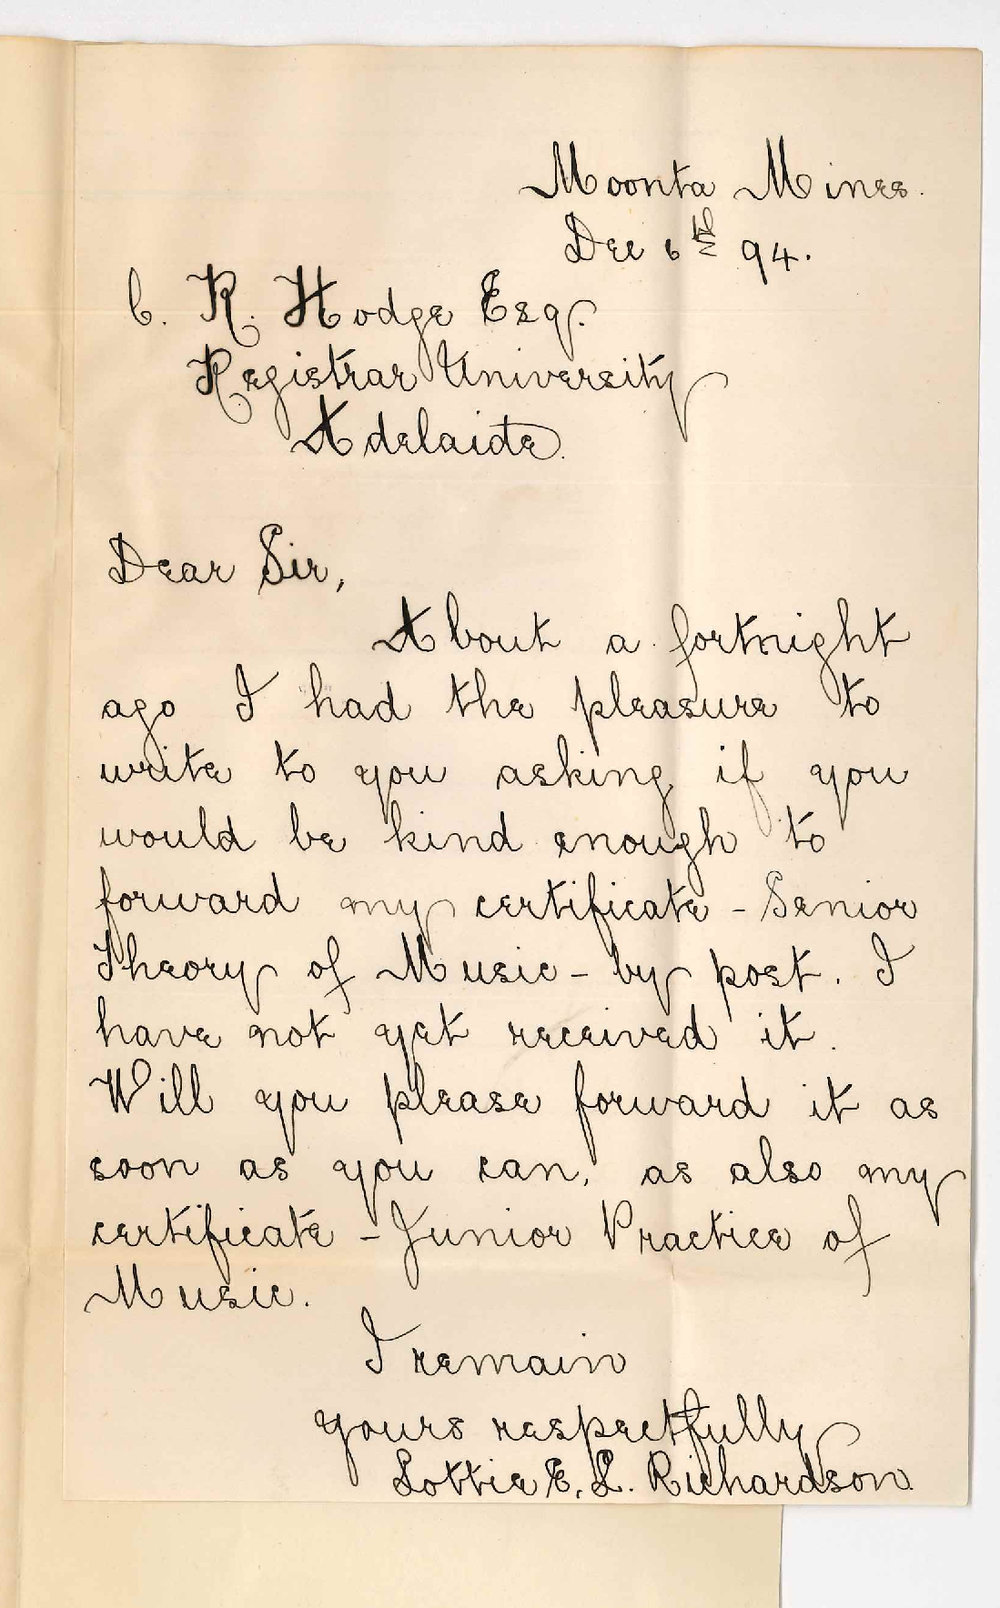 Moonta Mines.
Dec 6th 94.
C. R. Hodge Esq.
Registrar University
Adelaide.
Dear Sir,
About a fortnight
ago I had the pleasure to
write to you asking if you
would be kind enough to
forward my certificate - Senior
Theory of Music - by post. I
have not yet received it.
Will you please forward it as
soon as you can, as also my
certificate - Junior Practice of
Music.
I remain
yours respectfully
Lottie E. L. Richardson.